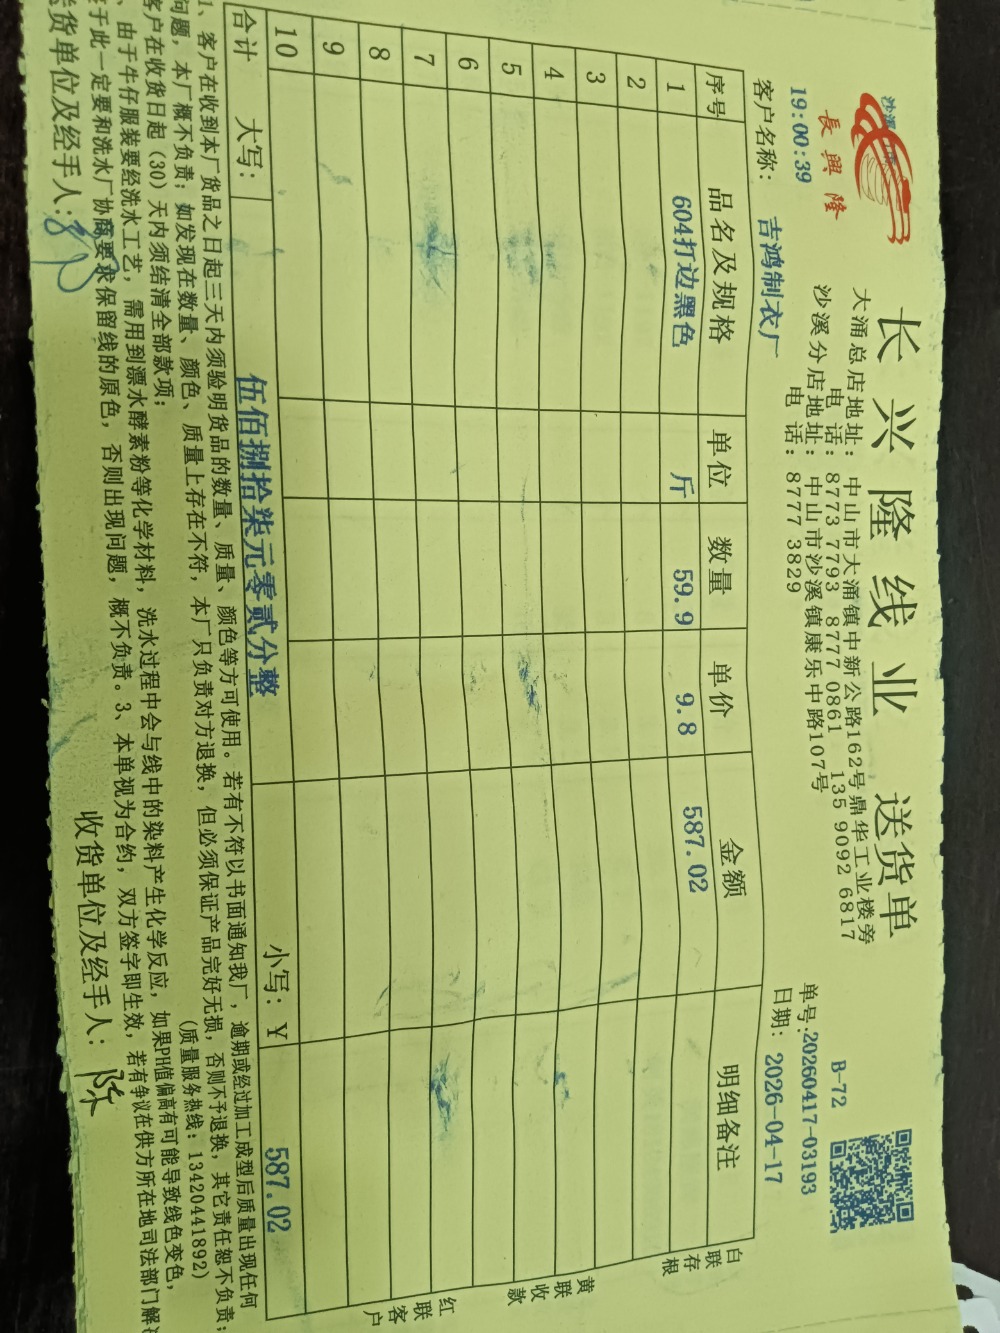 長興隆
长兴隆线业 送货单
大涌总店地址：中山市大涌镇中新公路162号鼎华工业楼旁
电 话：8773 7793 8777 0861 135 9092 6817
沙溪分店地址：中山市沙溪镇康乐中路107号
电 话：8777 3829
B-72
单号:20260417-03193
日期：2026-04-17
19:00:39
客户名称：吉鸿制衣厂
序号 品名及规格 单位 数量 单价 金额 明细备注
1 604打边黑色 斤 59.9 9.8 587.02
2
3
4
5
6
7
8
9
10
合计 大写：伍佰捌拾柒元零贰分整 小写：¥ 587.02
白联存根
黄联收款
红联客户
1、客户在收到本厂货品之日起三天内须验明货品的数量、质量、颜色等方可使用。若有不符以书面通知我厂，逾期或经过加工成型后质量出现任何
问题，本厂概不负责；如发现在数量、颜色、质量上存在不符，本厂只负责对方退换，但必须保证产品完好无损，否则不予退换，其它责任恕不负责；
客户在收货日起（30）天内须结清全部款项； (质量服务热线：13420441892)
、由于牛仔服装要经洗水工艺，需用到漂水酵素粉等化学材料，洗水过程中会与线中的染料产生化学反应，如果PH值偏高有可能导致线色变色，
于此一定要和洗水厂协商要求保留线的原色，否则出现问题，概不负责。3、本单视为合约，双方签字即生效，若有争议在供方所在地司法部门解
货单位及经手人： 收货单位及经手人：